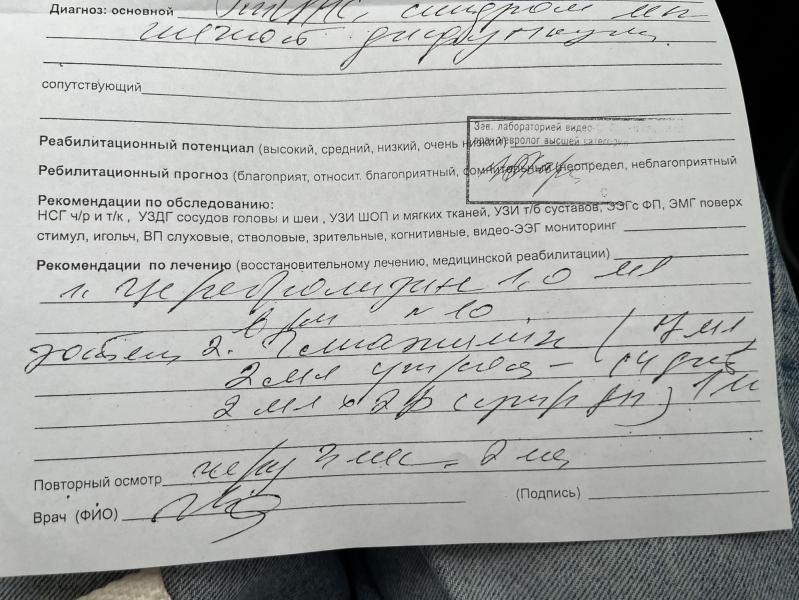 Диагноз: основной ППЦНС, синдром мы
шечной дисфункции
сопутствующий
Зав. лабораторией видео-
врач невролог высшей категории
Реабилитационный потенциал (высокий, средний, низкий, очень низкий)
Ребилитационный прогноз (благоприят, относит. благоприятный, сомнительный (неопредел, неблагоприятный
Рекомендации по обследованию:
НСГ ч/р и т/к , УЗДГ сосудов головы и шеи , УЗИ ШОП и мягких тканей, УЗИ т/б суставов, ЭЭГс ФП, ЭМГ поверх
стимул, игольч, ВП слуховые, стволовые, зрительные, когнитивные, видео-ЭЭГ мониторинг
Рекомендации по лечению (восстановительному лечению, медицинской реабилитации)
1. Церебролизин 1,0 мл
в/м № 10
2. (
2 мл утром
2 мл х 2р
Повторный осмотр через 2 мес
Врач (ФИО)
(Подпись)